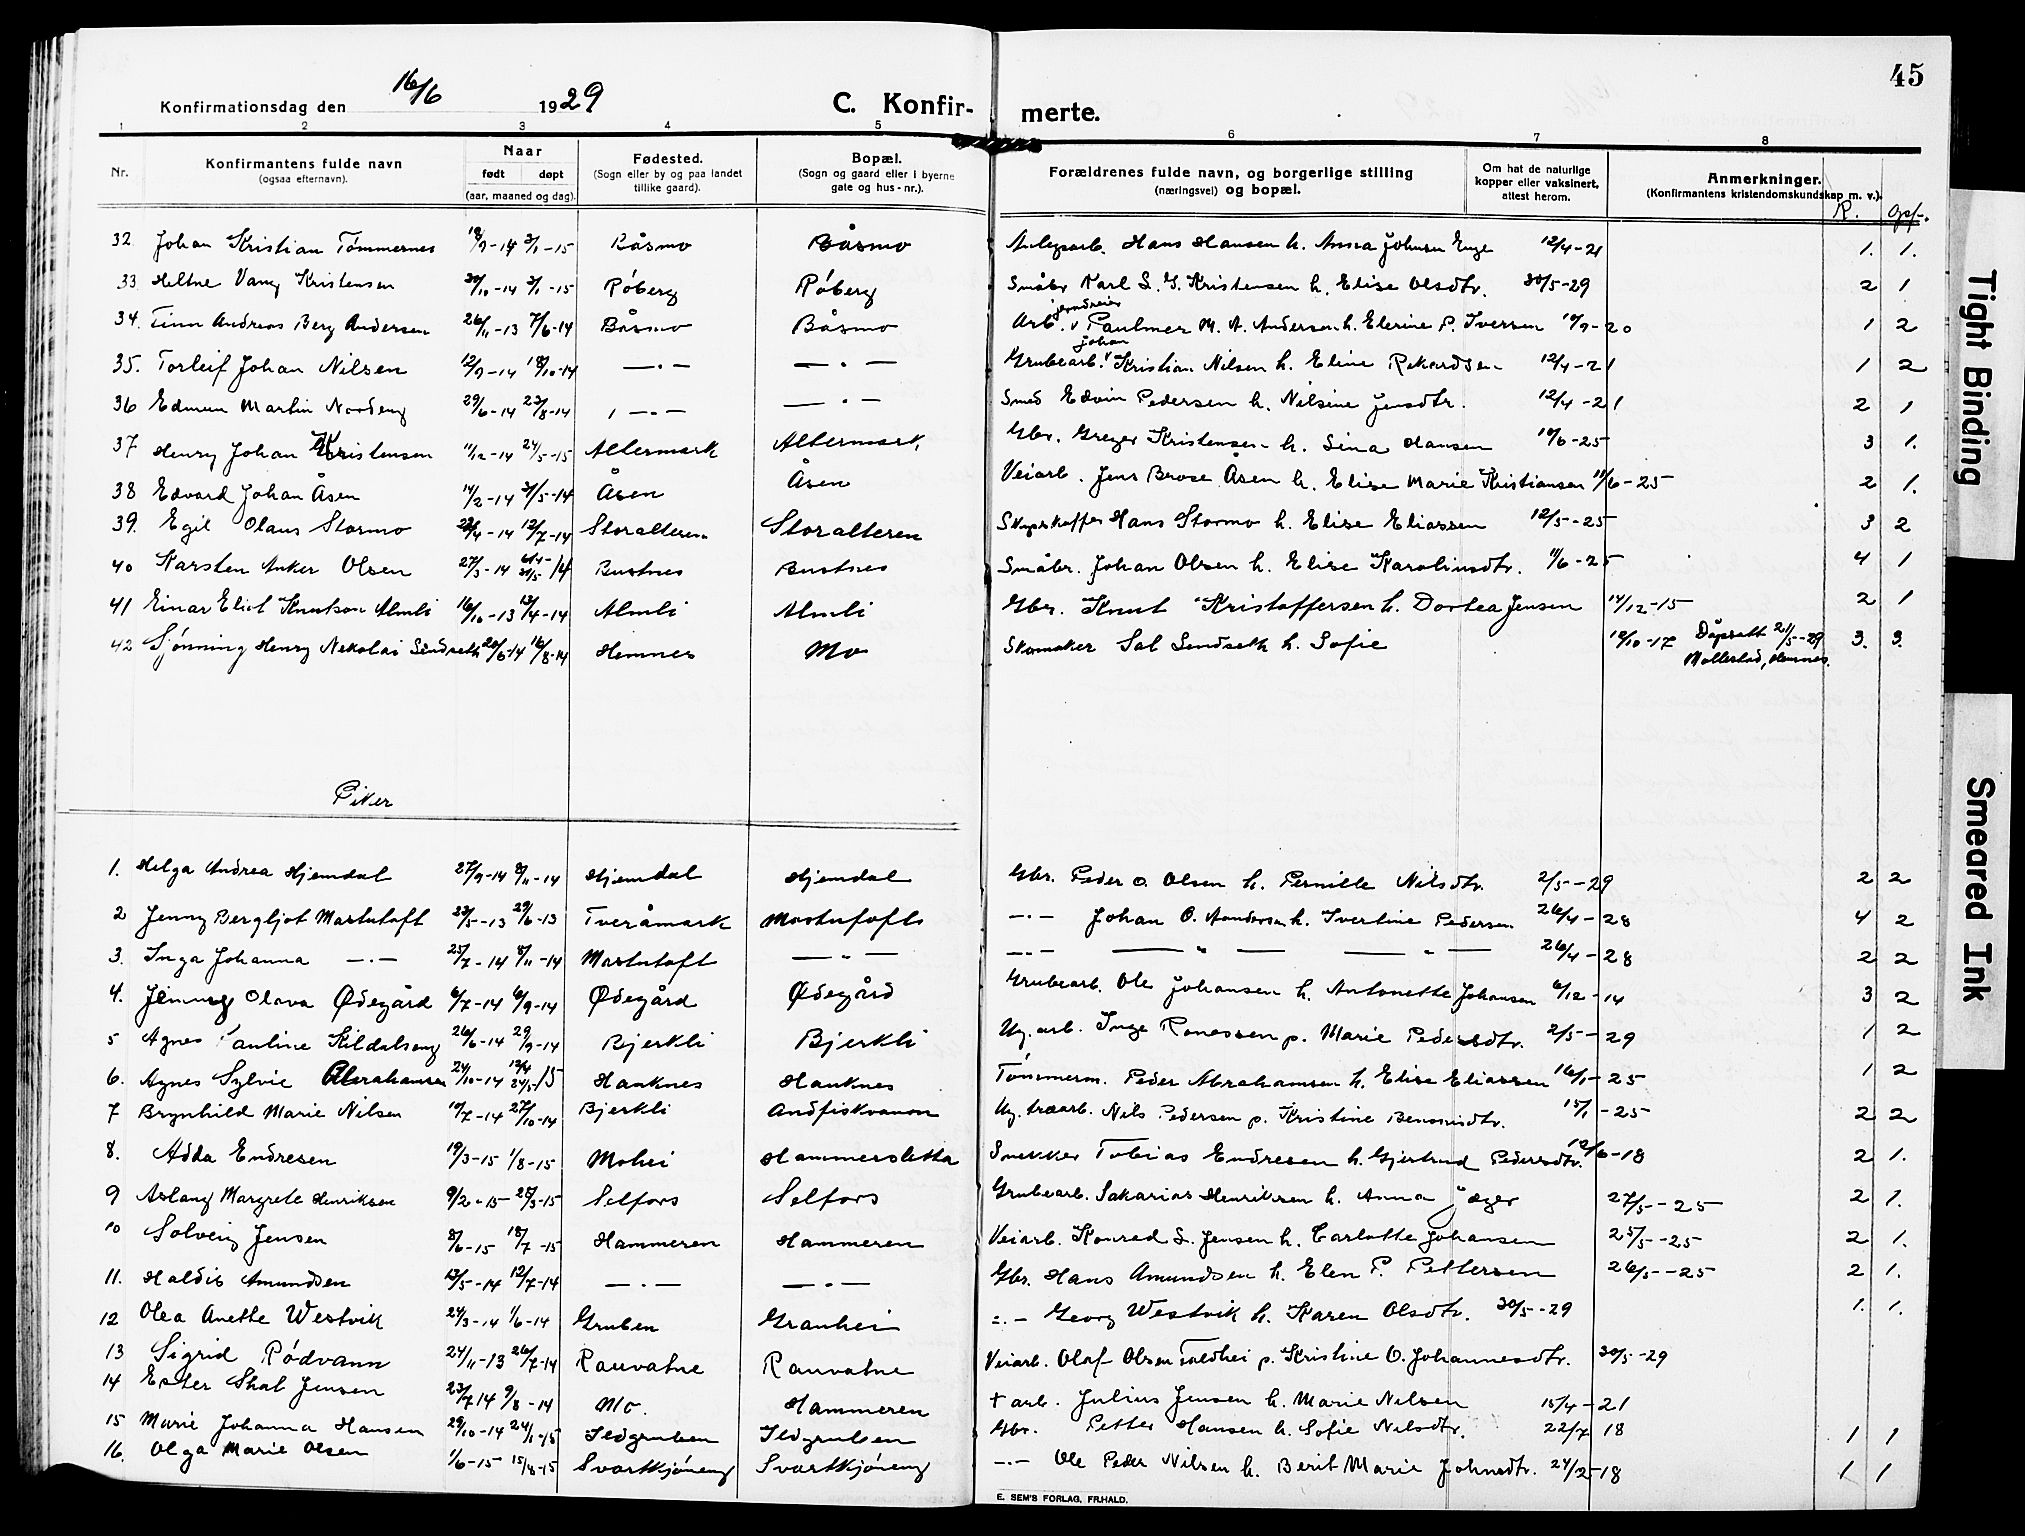 45
Konfirmationsdag den 16/6 1929 C. Konfirmerte.
1 2 3 4 5 6 7 8
Nr. Konfirmantens fulde navn (ogsaa efternavn). Naar født døpt (aar, maaned og dag). Fødested. (Sogn eller by og paa landet tillike gaard). Bopæl. (Sogn og gaard eller i byerne gate og hus-nr.). Forældrenes fulde navn, og borgerlige stilling (næringsvei) og bopæl. Om hat de naturlige kopper eller vaksinert, attest herom. Anmerkninger. (Konfirmantens kristendomskundskap m. v.). R. Opf.
32 Johan Kristian Tømmernes 18/9-14 3/1-15 Båsmo Båsmo Anlegsarb. Hans Hansen h. Anna Johnsen Enge 12/4-21 1. 1.
33 Heltne Vang Kristensen 30/10-14 3/1-15 Røberg Røberg Småbr Karl S. G. Kristensen h. Elise Olsdtr. 30/5-29 2 1
34. Finn Andreas Berg Andersen 26/11-13 7/6-14 Båsmo Båsmo Arb. jordeier Paulmer M. A. Andersen h. Elerine P. Iversen 10/9-20 1 2
35. Torleif Johan Nilsen 12/9-14 18/10-14 —·— —·— Grubearb. Johan Kristian Nilsen h. Eline Rikardsen 12/4-21 1 2
36 Edmun Martin Nordeng 29/6-14 23/8-14 —·— —·— Smed Edvin Pedersen h. Nilsine Jensdtr. 12/4-21 2 1
37 Henry Johan Kristensen 11/12-14 24/5-15 Altermark Altermark Gbr. Greger Kristensen h. Lina Hansen 10/6-25 3 1.
38 Edvard Johan Åsen 14/2-14 31/5-14 Åsen Åsen Veiarb. Jens Brose Åsen h. Elise Marie Kristiansen 11/6-25 2 1.
39. Egil Olaus Stormo 23/4-14 12/7-14 Storalteren Storalteren Hans Stormo h. Elise Eliassen 12/5-25 3 2
40 Karsten Anker Olsen 27/3-14 31/5-14 Bustnes Bustnes Småbr. Johan Olsen h. Elise Karolinsdtr. 11/6-25 4 1
41 Einar Eliot Knutson Almli 16/10-13 13/4-14 Almli Almli Gbr. Knut Kristoffersen h. Dortea Jensen 14/12-15 2 1
42 Sjønning Henry Nikolai Sendseth 20/6-14 16/8-14 Hemnes Mo Skomaker Sal Sendseth h. Sofie 12/10-17 Dåpsatt 21/5-29 Mollestad, Hemnes. 3. 3.
Piker
1. Helga Andrea Hjemdal 27/9-14 8/11-14 Hjemdal Hjemdal Gbr. Peder O. Olsen h. Pernille Nilsdtr. 2/5-29 2 2
2 Jenny Bergljot Mastutoft 23/5-13 29/6-13 Tveråmark Mastutoft —·— Johan O. Aanderssen h. Ivertine Pedersen 26/4-28 4 2
3. Inga Johanna —·— 25/7-14 8/11-14 Mastutoft —·— —·— — " — — " — 26/4-28 2 2
4. Jenny Olava Ødegård 6/7-14 6/9-14 Ødegård Ødegård Grubearb. Ole Johansen h. Antonette Johansen 6/12-14 3 2
5 Agnes Pauline Kildalseng 26/6-14 29/9-14 Bjerkli Bjerkli Ug. arb. Inge Ronessen p. Marie Pedersdtr. 2/5-29 1 2
6. Agnes Sylvie Abrahamsen 24/10-14 24/5-15 Hauknes Hauknes Tømmerm. Peder Abrahamsen h. Elise Eliassen 16/1-25 1 2
7 Brynhild Marie Nilsen 10/7-14 27/10-14 Bjerkli Andfiskvannn Ug. træarb. Nils Pedersen p. Kristine Bensnidtr. 15/1-25 2 2
8. Adda Endresen 19/3-15 1/8-15 Mohei Hammersletta Snekker Tobias Endresen h. Gjertrud Pedersdtr. 12/6-18 2 1.
9 Aslaug Margrete Henriksen 9/2-15 25/3-15 Selfors Selfors Grubearb. Sakarias Henriksen h. Anna Jæger 27/5-25 2 1.
10 Solveig Jensen 8/6-15 18/7-15 Hammeren Hammeren Veiarb. Konrad L. Jensen h. Carlotte Johansen 25/5-25 2 1.
11. Haldis Amundsen 13/5-14 12/7-14 —·— —·— Gbr. Hans Amundsen h. Elen P. Pettersen 26/5-25 2 1.
12 Olea Anette Westvik 24/3-14 1/6-14 Gruben Granhei —·— Georg Westvik h. Karen Olsdtr. 30/5-29 1. 1.
13 Sigrid Rødvann 24/11-13 26/7-14 Rauvatne Rauvatne Veiarb. Olaf Olsen Foldhei p. Kristine O. Johannesdtr. 30/5-29
14 Ester Skat Jensen 23/7 14 9/8-14 Mo. Hammeren † arb. Julius Jensen h. Marie Nilsen 15/4-21
15 Marie Johanna Hansen 29/10-14 24/1-15 Ildgruben Ildgruben Gbr. Petter Hansen h. Sofie Nilsdtr. 22/7 18 1 1
16. Olga Marie Olsen 1/6-15 15/8-15 Svartkjøneng Svartkjøneng —·— Ole Peder Nilsen h. Berit Marie Johnsdtr. 24/2-18 1 1
E. SEM'S FORLAG, FR.HALD.
Tight Binding
Smeared Ink